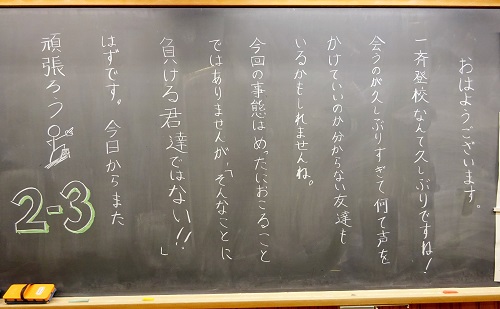 おはようございます。
一斉登校なんて久しぶりですね！
会うのが久しぶりすぎて何て声を
かけていいのか分からない友達も
いるかもしれませんね。
今回の事態はめったにおこること
ではありませんが、「そんなことに
負ける君達ではない!!」
はずです。今日からまた
頑張ろう
2-3